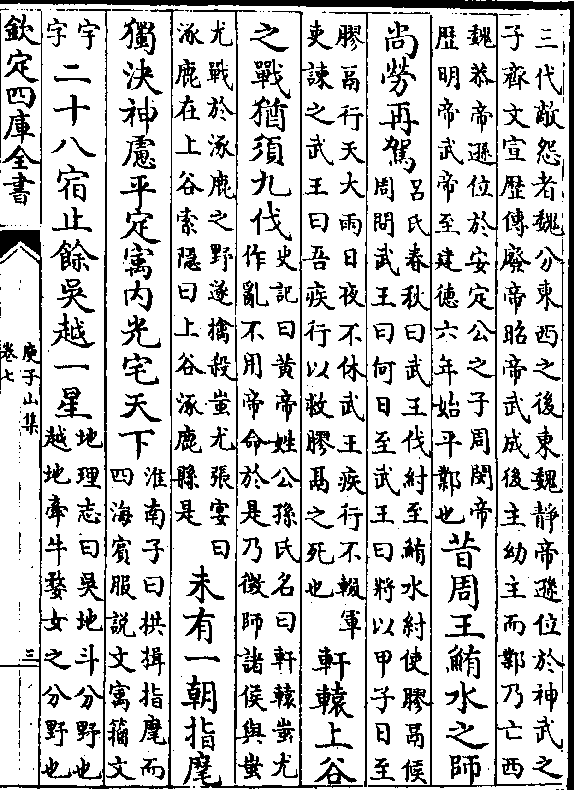 三代敵怨者魏分東西之後東魏静帝遜位於神武之
子齊文宣歴傳廢帝昭帝武成後主幼主而鄴乃亡西
魏恭帝遜位於安定公之子周閔帝
歴明帝武帝至建德六年始平鄴也
昔周王鮪水之師
尚勞再駕
吕氏春秋曰武王伐紂至鮪水紂使膠鬲候
周問武王曰何日至武王曰將以甲子日至
膠鬲行天大雨日夜不休武王疾行不輟軍
吏諫之武王曰吾疾行以救膠鬲之死也
軒轅上谷
之戰猶須九伐
史記曰黄帝姓公孫氏名曰軒轅蚩尤
作亂不用帝命於是乃徴師諸侯與蚩
尤戰於涿鹿之野遂擒殺蚩尤張宴曰
涿鹿在上谷索隱曰上谷涿鹿縣是
未有一朝指麾
獨決神慮平定寓内光宅天下
淮南子曰拱揖指麾而
四海賓服説文寓籀文
宇
字
二十八宿止餘吳越一星
地理志曰吳地斗分野也
越地牽牛婺女之分野也
欽定四庫全書
庾子山集
卷七
三